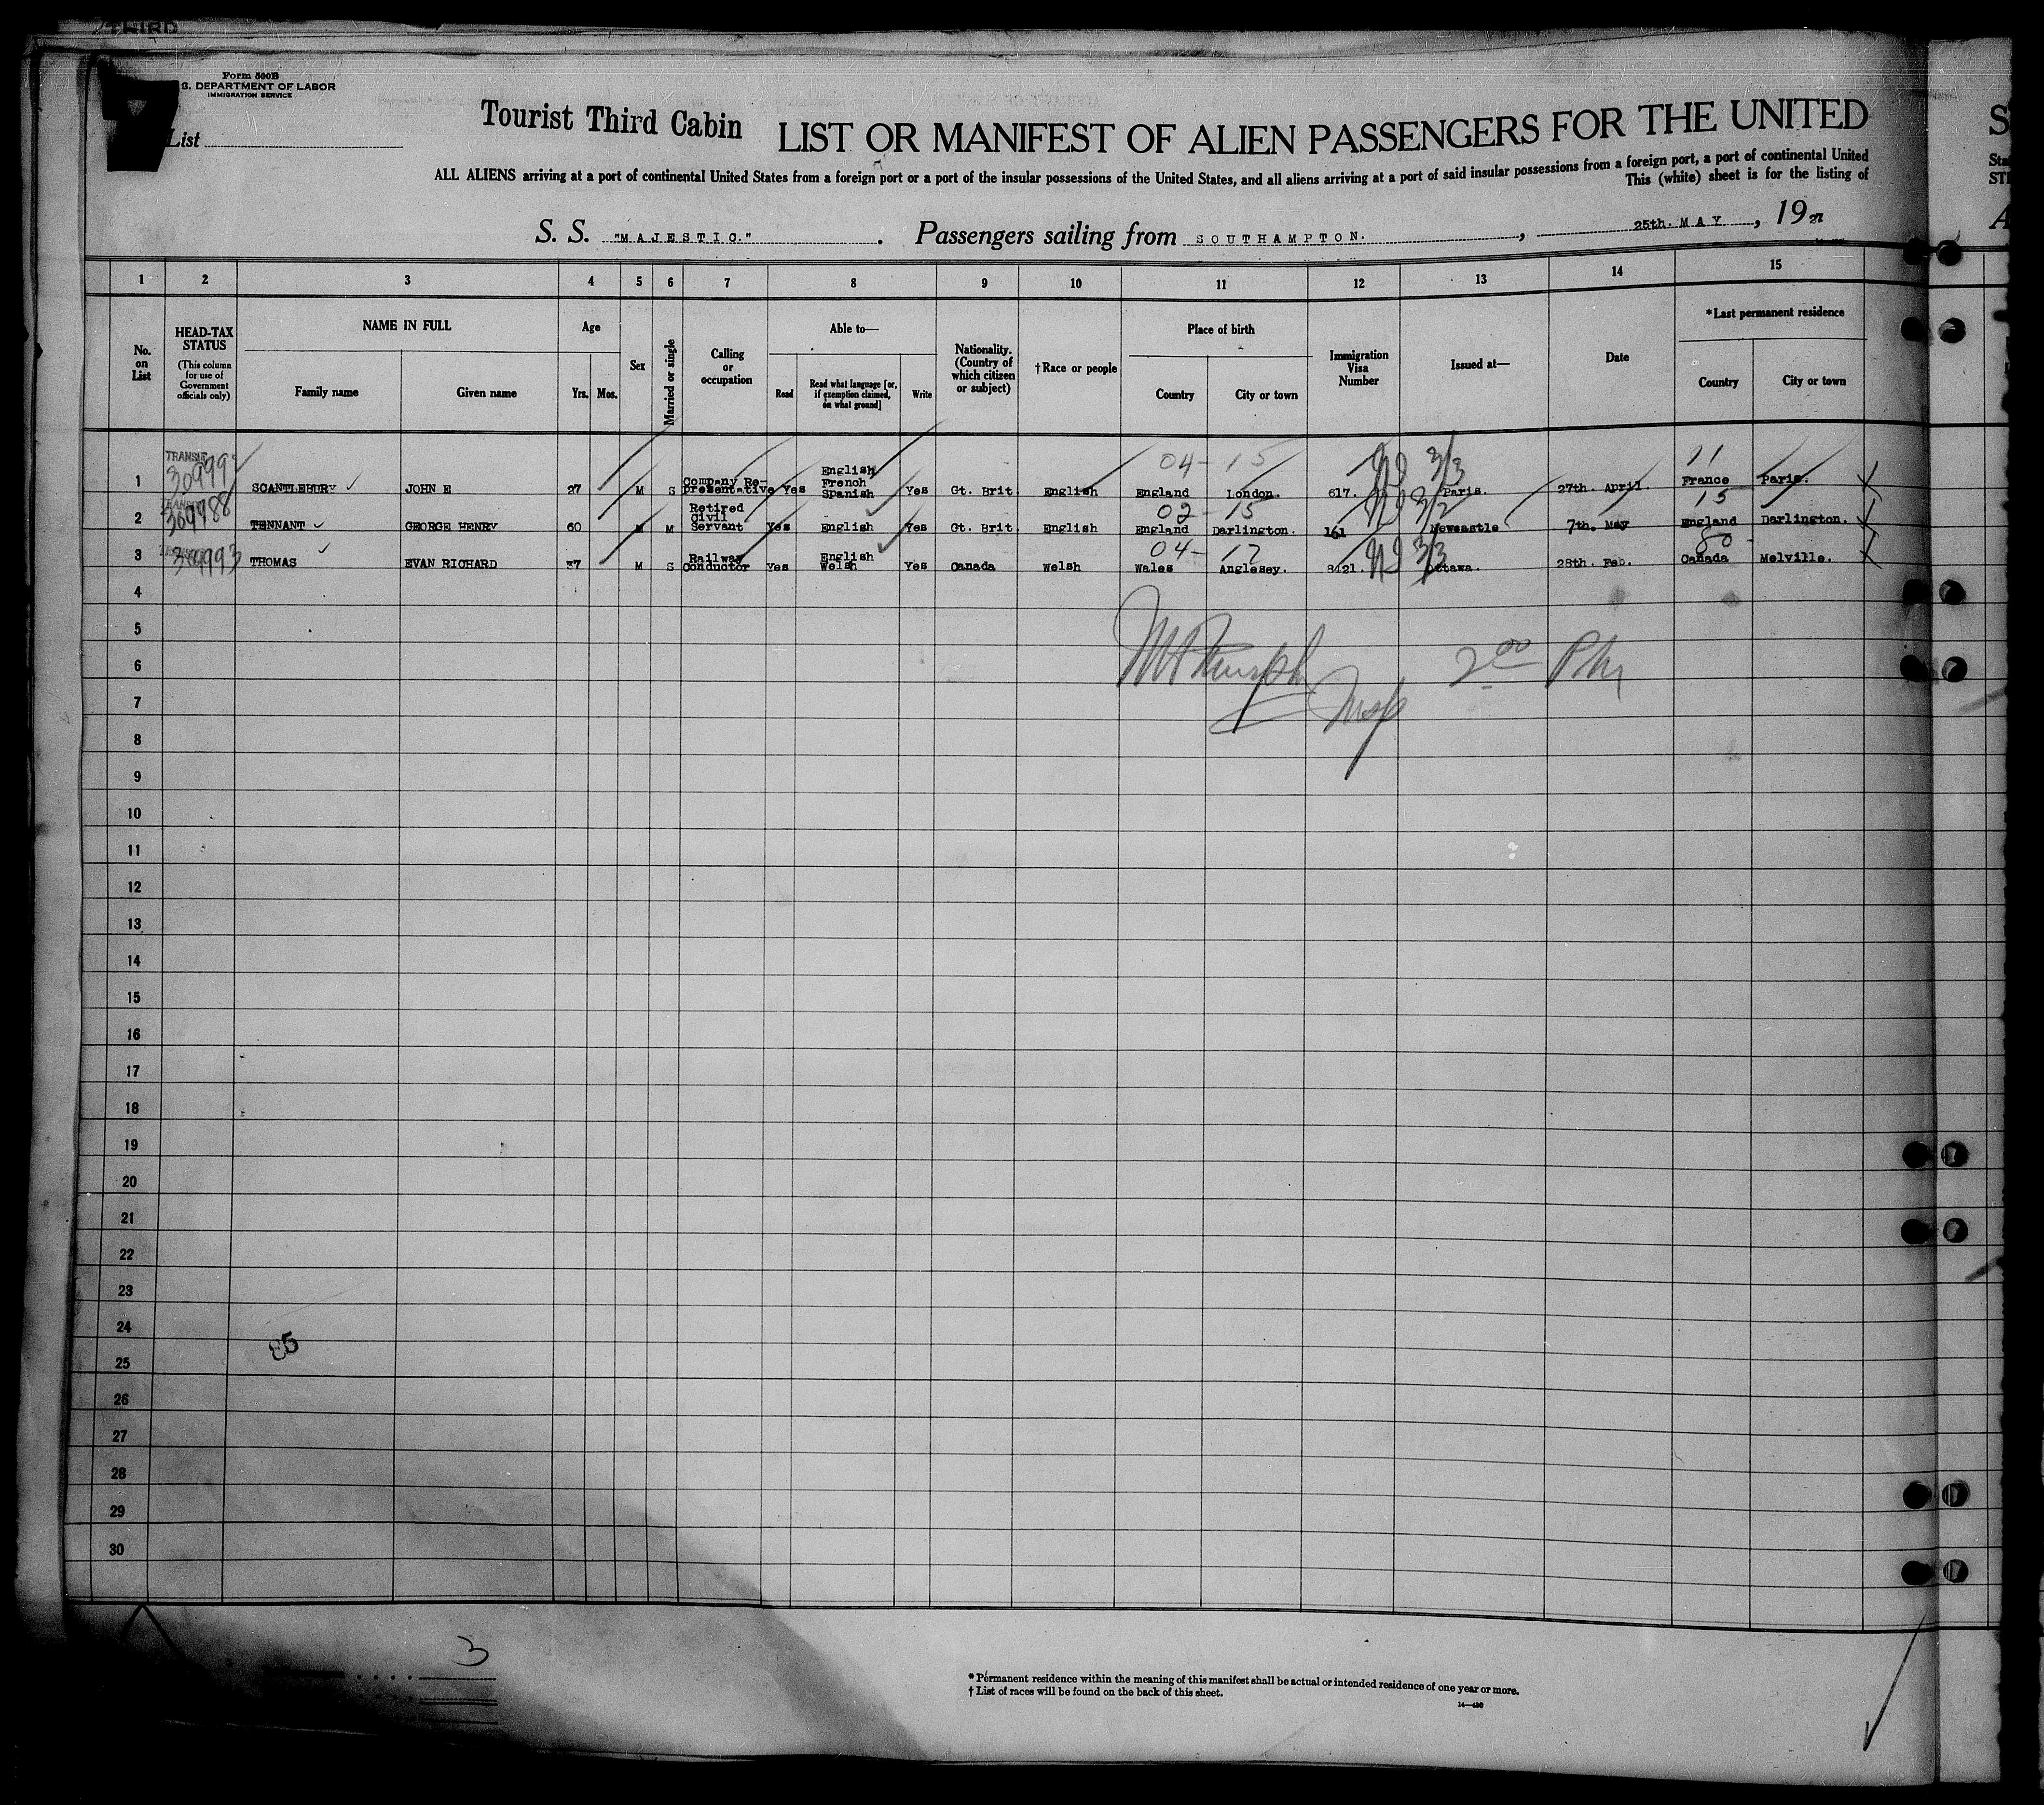 THIRD
Form 500B
S. DEPARTMENT OF LABOR
IMMIGRATION SERVICE
List
Tourist Third Cabin LIST OR MANIFEST OF ALIEN PASSENGERS FOR THE UNITED
ALL ALIENS arriving at a port of continental United States from a foreign port or a part of the insular possessions of the United States, and all aliens arriving at a port of said insular possessions from a foreign port, a port of continental United
This (white) sheet is for the listing of
S. S. "MAJESTIC." . Passengers sailing from SOUTHAMPTON. , 25th. MAY , 19 27
1 2 3 4 5 6 7 8 9 10 11 12 13 14 15
No. on List
HEAD-TAX STATUS
(This column for use of Government officials only)
NAME IN FULL
Family name Given name
Age
Yrs. Mos.
Sex
Married or single
Calling or occupation
Able to—
Read
Read what language [or, if exemption claimed, on what ground]
Write
Nationality. (Country of which citizen or subject)
†Race or people
Place of birth
Country City or town
Immigration Visa Number
Issued at—
Date
*Last permanent residence
Country City or town
TRANSIT
04-15 3/3 11
1 SCANTLEBURY JOHN E 27 M S Company Representative Yes English French Spanish Yes Gt. Brit. English England London. 617. Paris. 27th. April. France Paris.
309988 02-15 3/2 15
2 TENNANT GEORGE HENRY 60 M M Retired Civil Servant Yes English Yes Gt. Brit. English England Darlington. 161 Newcastle 7th. May England Darlington.
309993 04-12 3/3 80
3 THOMAS EVAN RICHARD 37 M S Railway Conductor Yes English Welsh Yes Canada Welsh Wales Anglesey. 8421. Ottawa. 28th. Feb. Canada Melville.
4
5
6
2 00 PM
7
Insp
8
9
10
11
12
13
14
15
16
17
18
19
20
21
22
23
24
85
25
26
27
28
29
30
3
* Permanent residence within the meaning of this manifest shall be actual or intended residence of one year or more.
† List of races will be found on the back of this sheet.